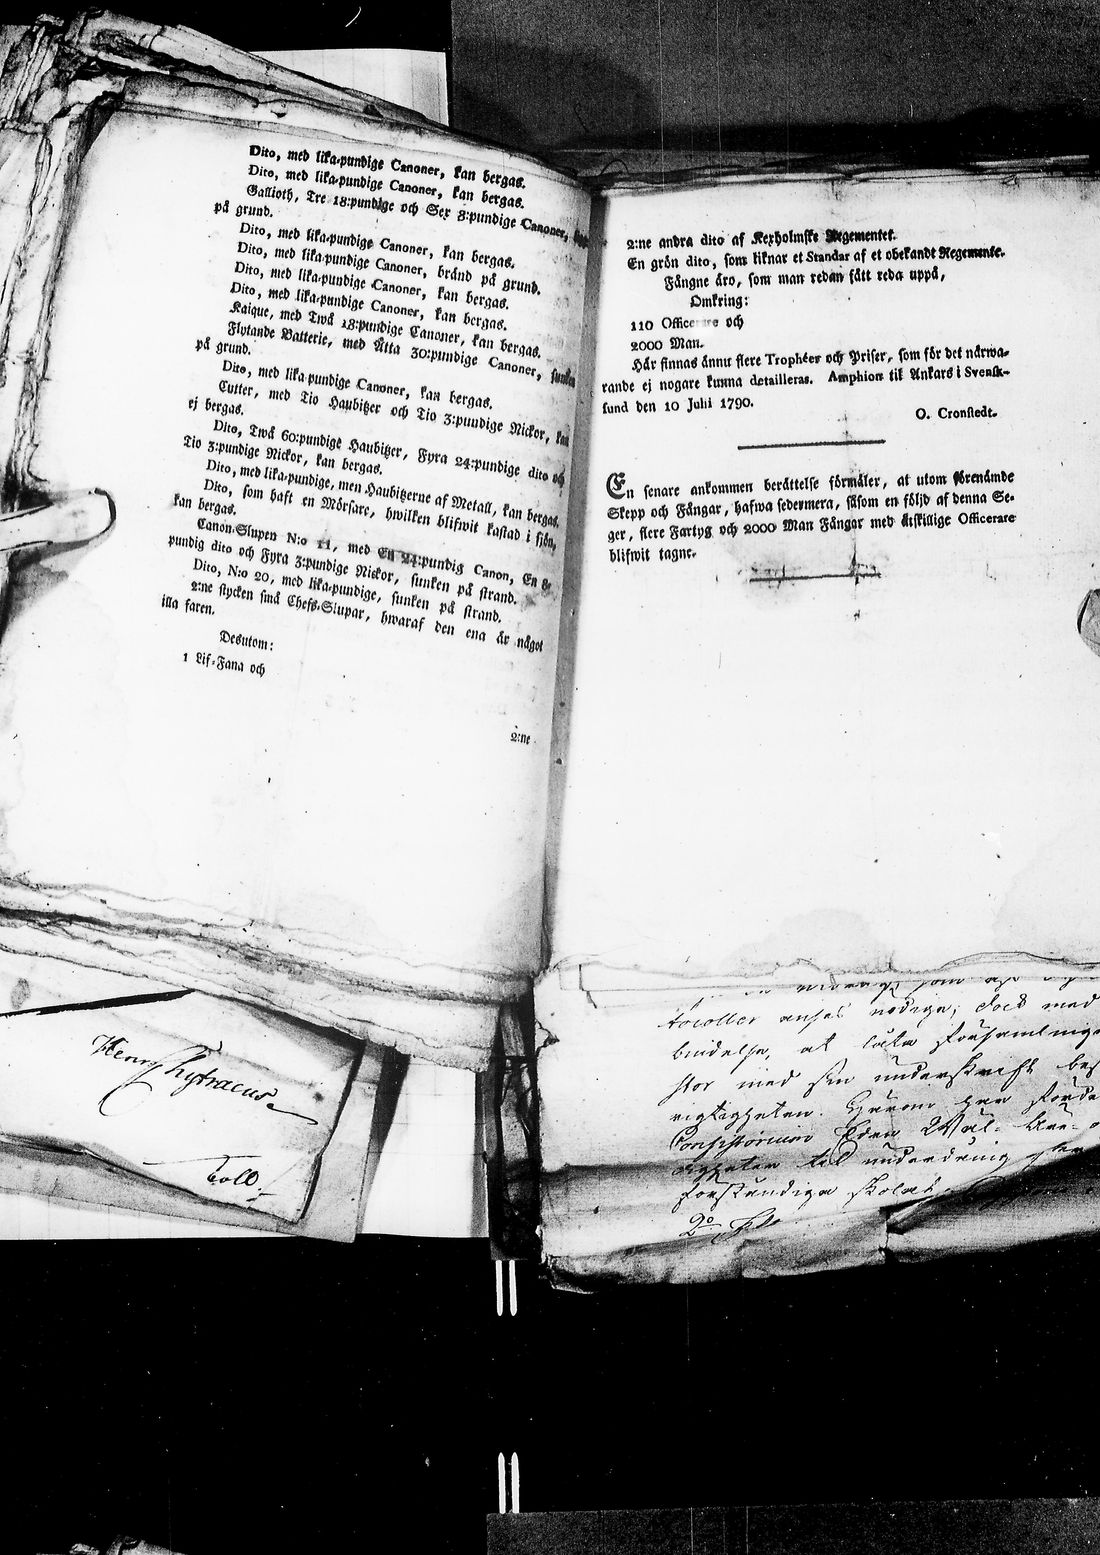 Dito, med lika-pundige Canoner, kan bergas.
Dito, med lika-pundige Canoner, kan bergas.
Gallioth, Tre 18:pundige och Sex 8:pundige Canoner,
på grund.
Dito, med lika-pundige Canoner, kan bergas.
Dito, med lika-pundige Canoner, bränd på grund.
Dito, med lika-pundige Canoner, kan bergas.
Dito, med lika-pundige Canoner, kan bergas.
Kaique, med Twå 18:pundige Canoner, kan bergas.
Flytande Batterie, med Åtta 30:pundige Canoner, sunken
på grund.
Dito, med lika pundige Canoner, kan bergas.
Cutter, med Tio Haubitzer och Tio 3:pundige Nickor, kan
ej bergas.
Dito, Twå 60:pundige Haubitzer, Fyra 24:pundige dito och
Tio 3:pundige Nickor, kan bergas.
Dito, med lika-pundige, men Haubitzerne af Metall, kan bergas.
Dito, som haft en Mörsare, hwilken blifwit kastad i sjön,
kan bergas.
Canon-Slupen N:o 11, med En 24:pundig Canon, En 8-
pundig dito och Fyra 3:pundige Nickor, sunken på strand.
Dito, N:o 20, med lika-pundige, sunken på strand.
2:ne stycken små Chefs-Slupar, hwaraf den ena är något
illa faren.
Desutom:
1 Lif-Fana och
2:ne
2:ne andra dito af Kexholmske Regementet.
En grön dito, som liknar et Standar af et obekandt Regemente.
Fångne äro, som man redan fått reda uppå,
Omkring:
110 Officerare och
2000 Man.
Här finnas ännu flere Trophéer och Priser, som för det närwa-
rande ej nogare kunna detailleras. Amphion til Ankars i Svensk-
sund den 10 Julii 1790.
O. Cronstedt.
En senare ankommen berättelse förmäler, at utom förenämde
Skepp och Fångar, hafwa sedermera, såsom en följd af denna Se-
ger, flere Fartyg och 2000 Man Fångar med åtskillige Officerare
blifwit tagne.
tocoller anses nödiga; dock med
bindelse, at låta Församlings
med sin underskrift
rigtigheten. Härom
Consistorium Eder Wäl-
til underdånig
förständiga
2o
Henr Chytraeus
Coll